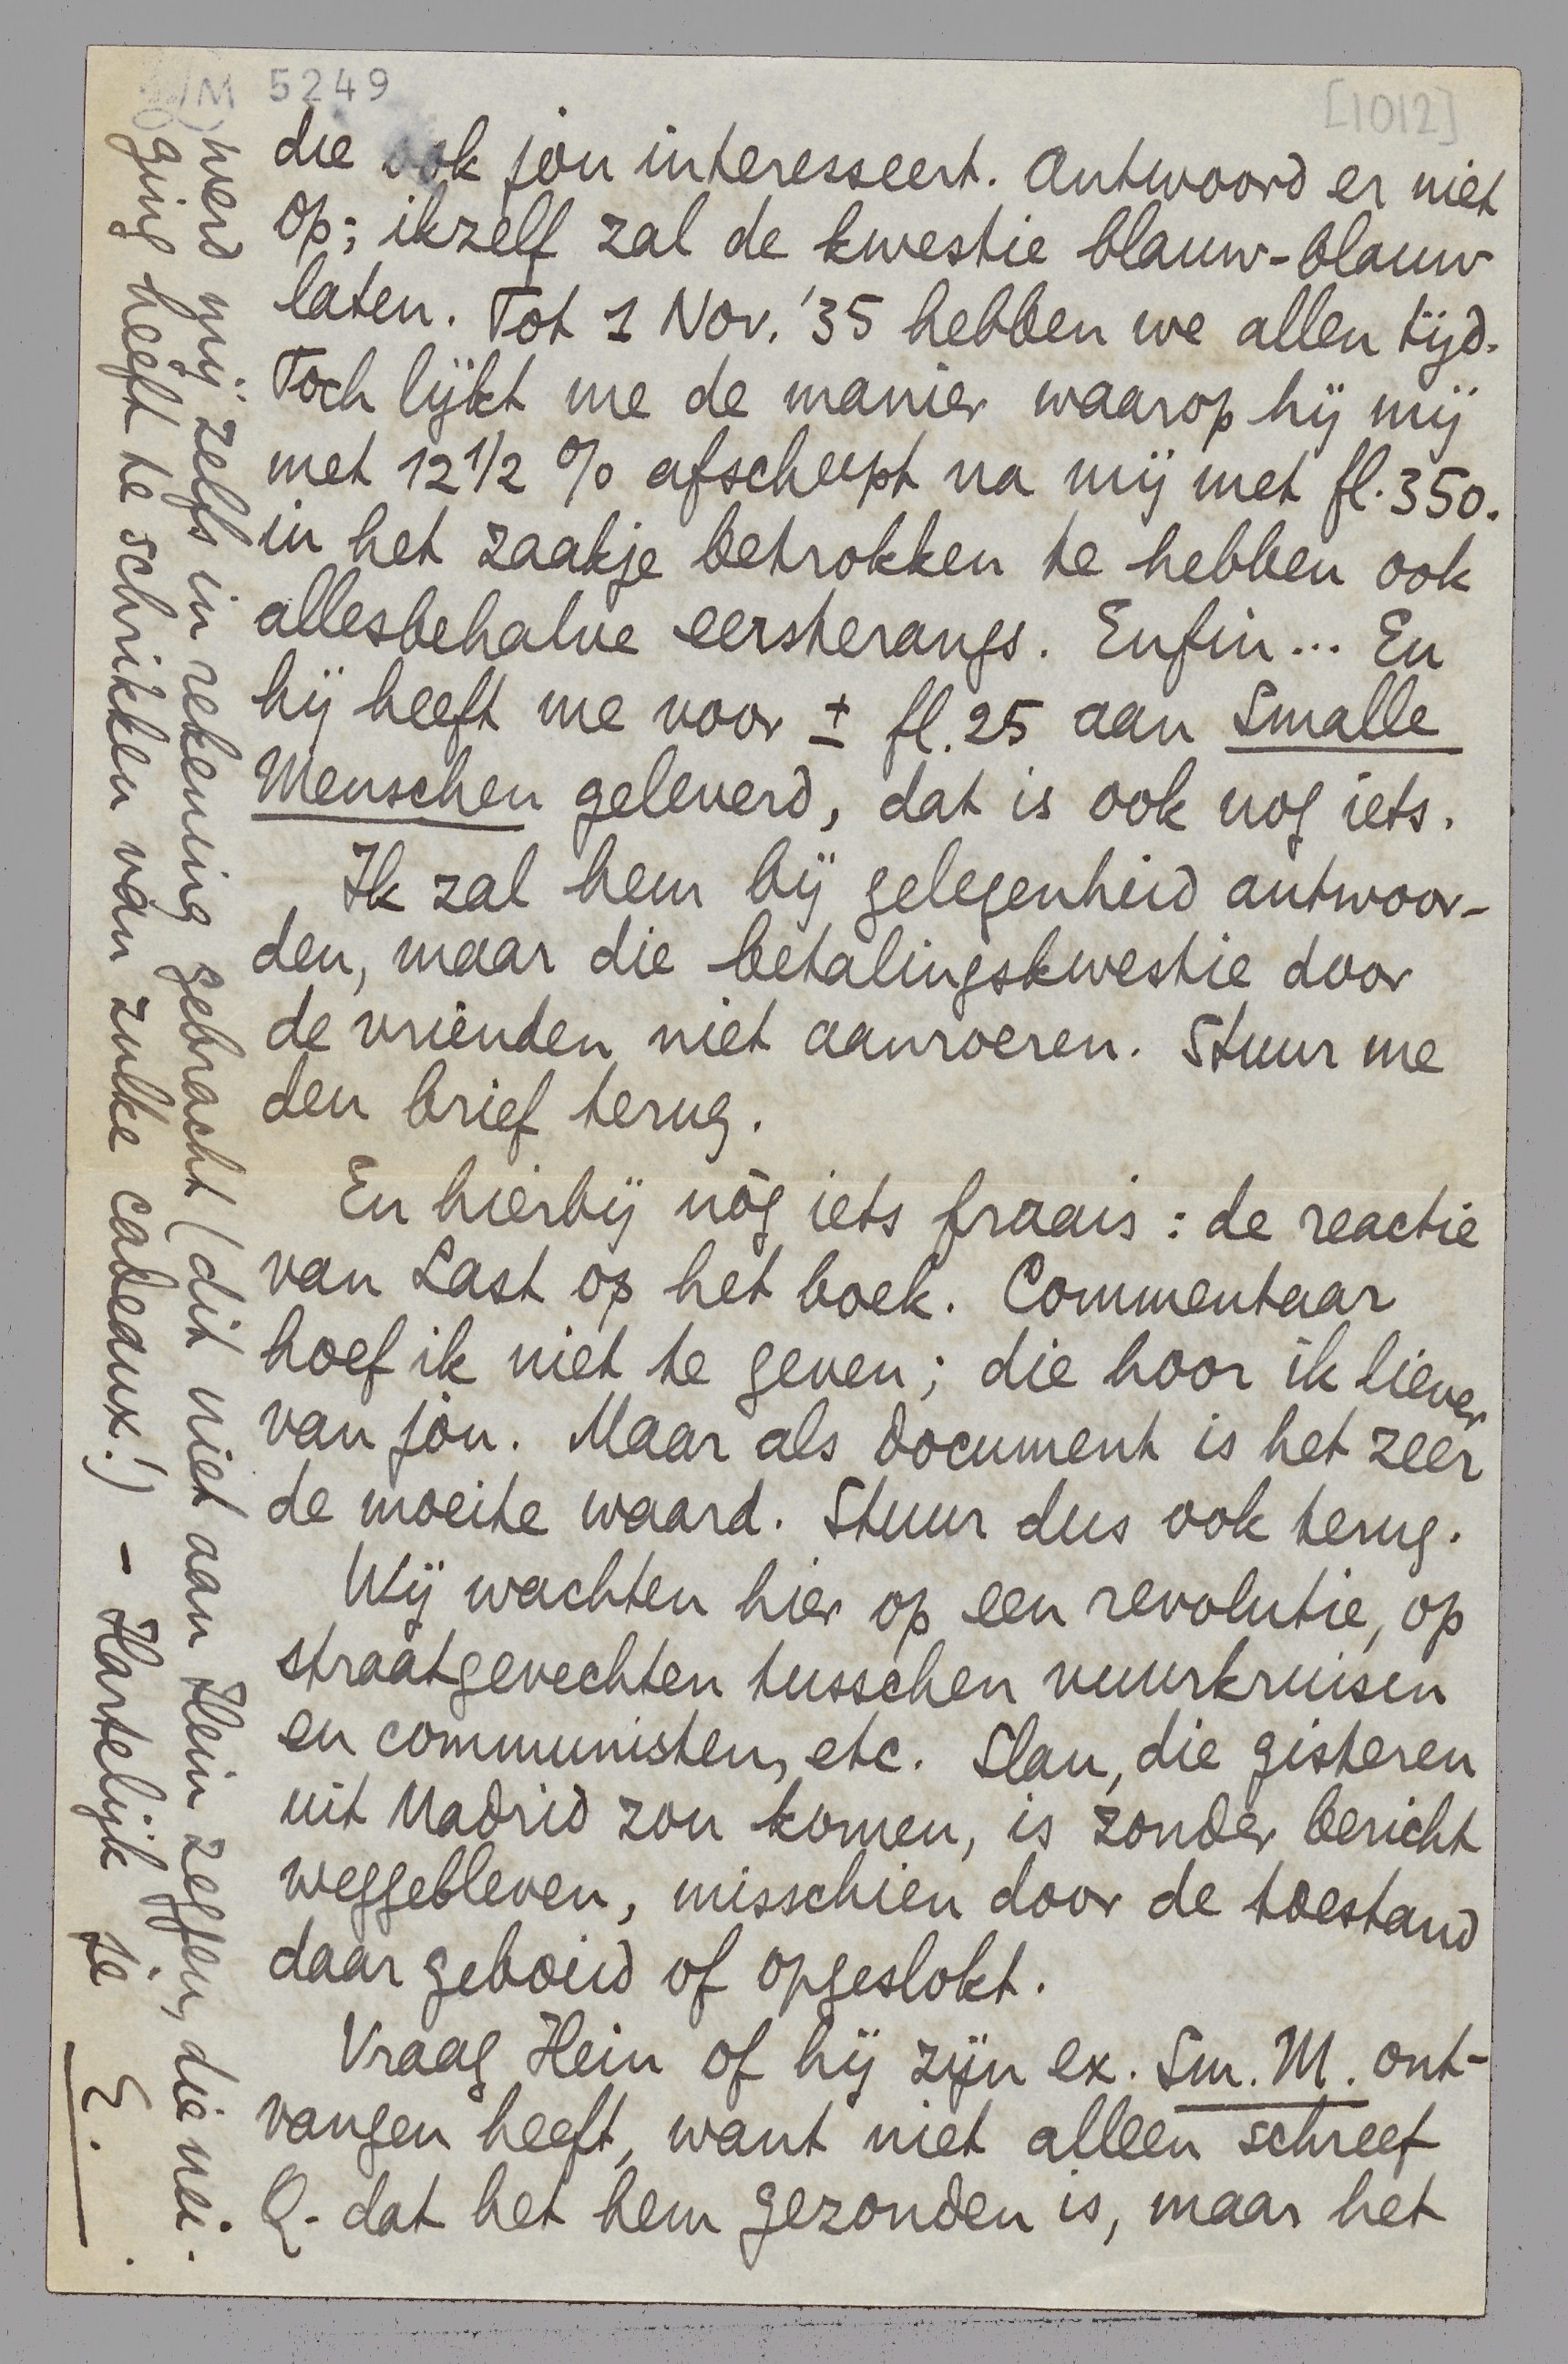 M 5249
[1012]
die ook jòu interesseert. Antwoord er niet
op; ikzelf zal de kwestie blauw-blauw
laten. Tot 1 Nov. '35 hebben we allen tijd.
Toch lijkt me de manier waarop hij mij
met 12 1/2 % afscheept na mij met fl. 350.
in het zaakje betrokken te hebben ook
allesbehalve eersterangs. Enfin... En
hij heeft me voor ± fl. 25 aan Smalle
Menschen geleverd, dat is ook nog iets.
Ik zal hem bij gelegenheid antwoor-
den, maar die betalingskwestie door
de vrienden niet aanroeren. Stuur me
den brief terug.
En hierbij nòg iets fraais: de reactie
van Last op het boek. Commentaar
hoef ik niet te geven; die hoor ik liever
van jòu. Maar als document is het zeer
de moeite waard. Stuur dus ook terug.
Wij wachten hier op een revolutie, op
straatgevechten tusschen vuurkruisen
en communisten, etc. Slau, die gisteren
uit Madrid zou komen, is zonder bericht
weggebleven, misschien door de toestand
daar geboeid of opgeslokt.
Vraag Hein of hij zijn ex. Sm. M. ont-
vangen heeft, want niet alleen schreef
Q. dat het hem gezonden is, maar het
werd mij zelfs in rekening gebracht (dit niet aan Hein zeggen, die nei-
ging heeft te schrikken van zulke cadeaux!) - Hartelijk je E.